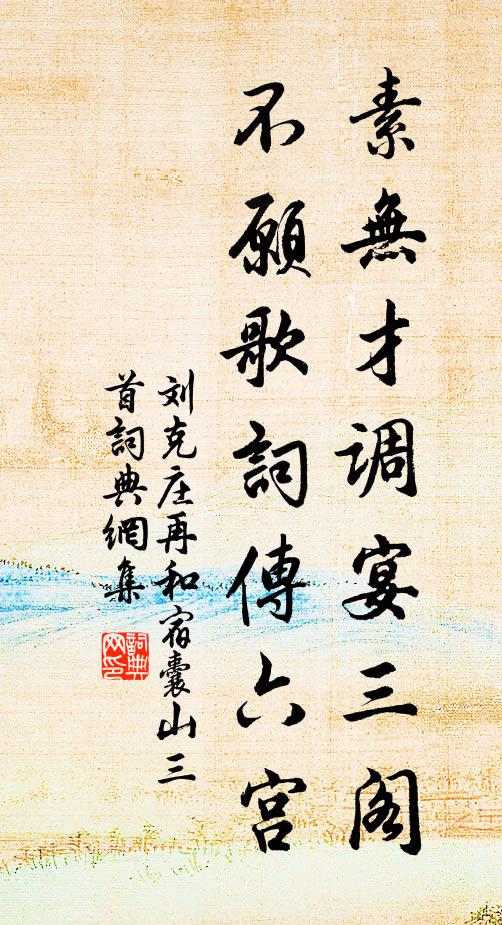 素無才调宴三阁
不願歌詞傳六宫
刘克庄再和宿囊山三
首詞典網集
詞典
网印